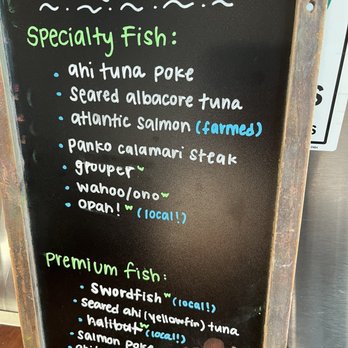 Specialty Fish:
• ahi tuna poke
• seared albacore tuna
• atlantic salmon (farmed)
• panko calamari steak
• grouper w
• wahoo/ono w
• opah! w (local!)
Premium fish:
• swordfish w (local!)
• seared ahi (yellowfin) tuna
• halibut w (local!)
• salmon poke